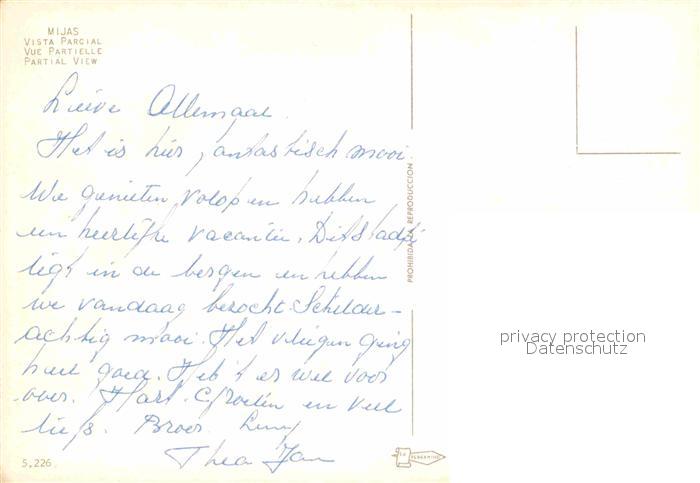 MIJAS
VISTA PARCIAL
VUE PARTIELLE
PARTIAL VIEW
Lieve Allemaal
Het is hier fantastisch mooi
We genieten volop en hebben
een heerlijke vacantie. Dit stadje
ligt in de bergen en hebben
we vandaag bezocht. Schilder-
achtig mooi. Het vliegen ging
heel goed. Heb 't er wel voor
over. Hart. Groeten en veel
liefs. Broer Leny
Thea Jan
5.226
PROHIBIDA LA REPRODUCCION
privacy protection
Datenschutz